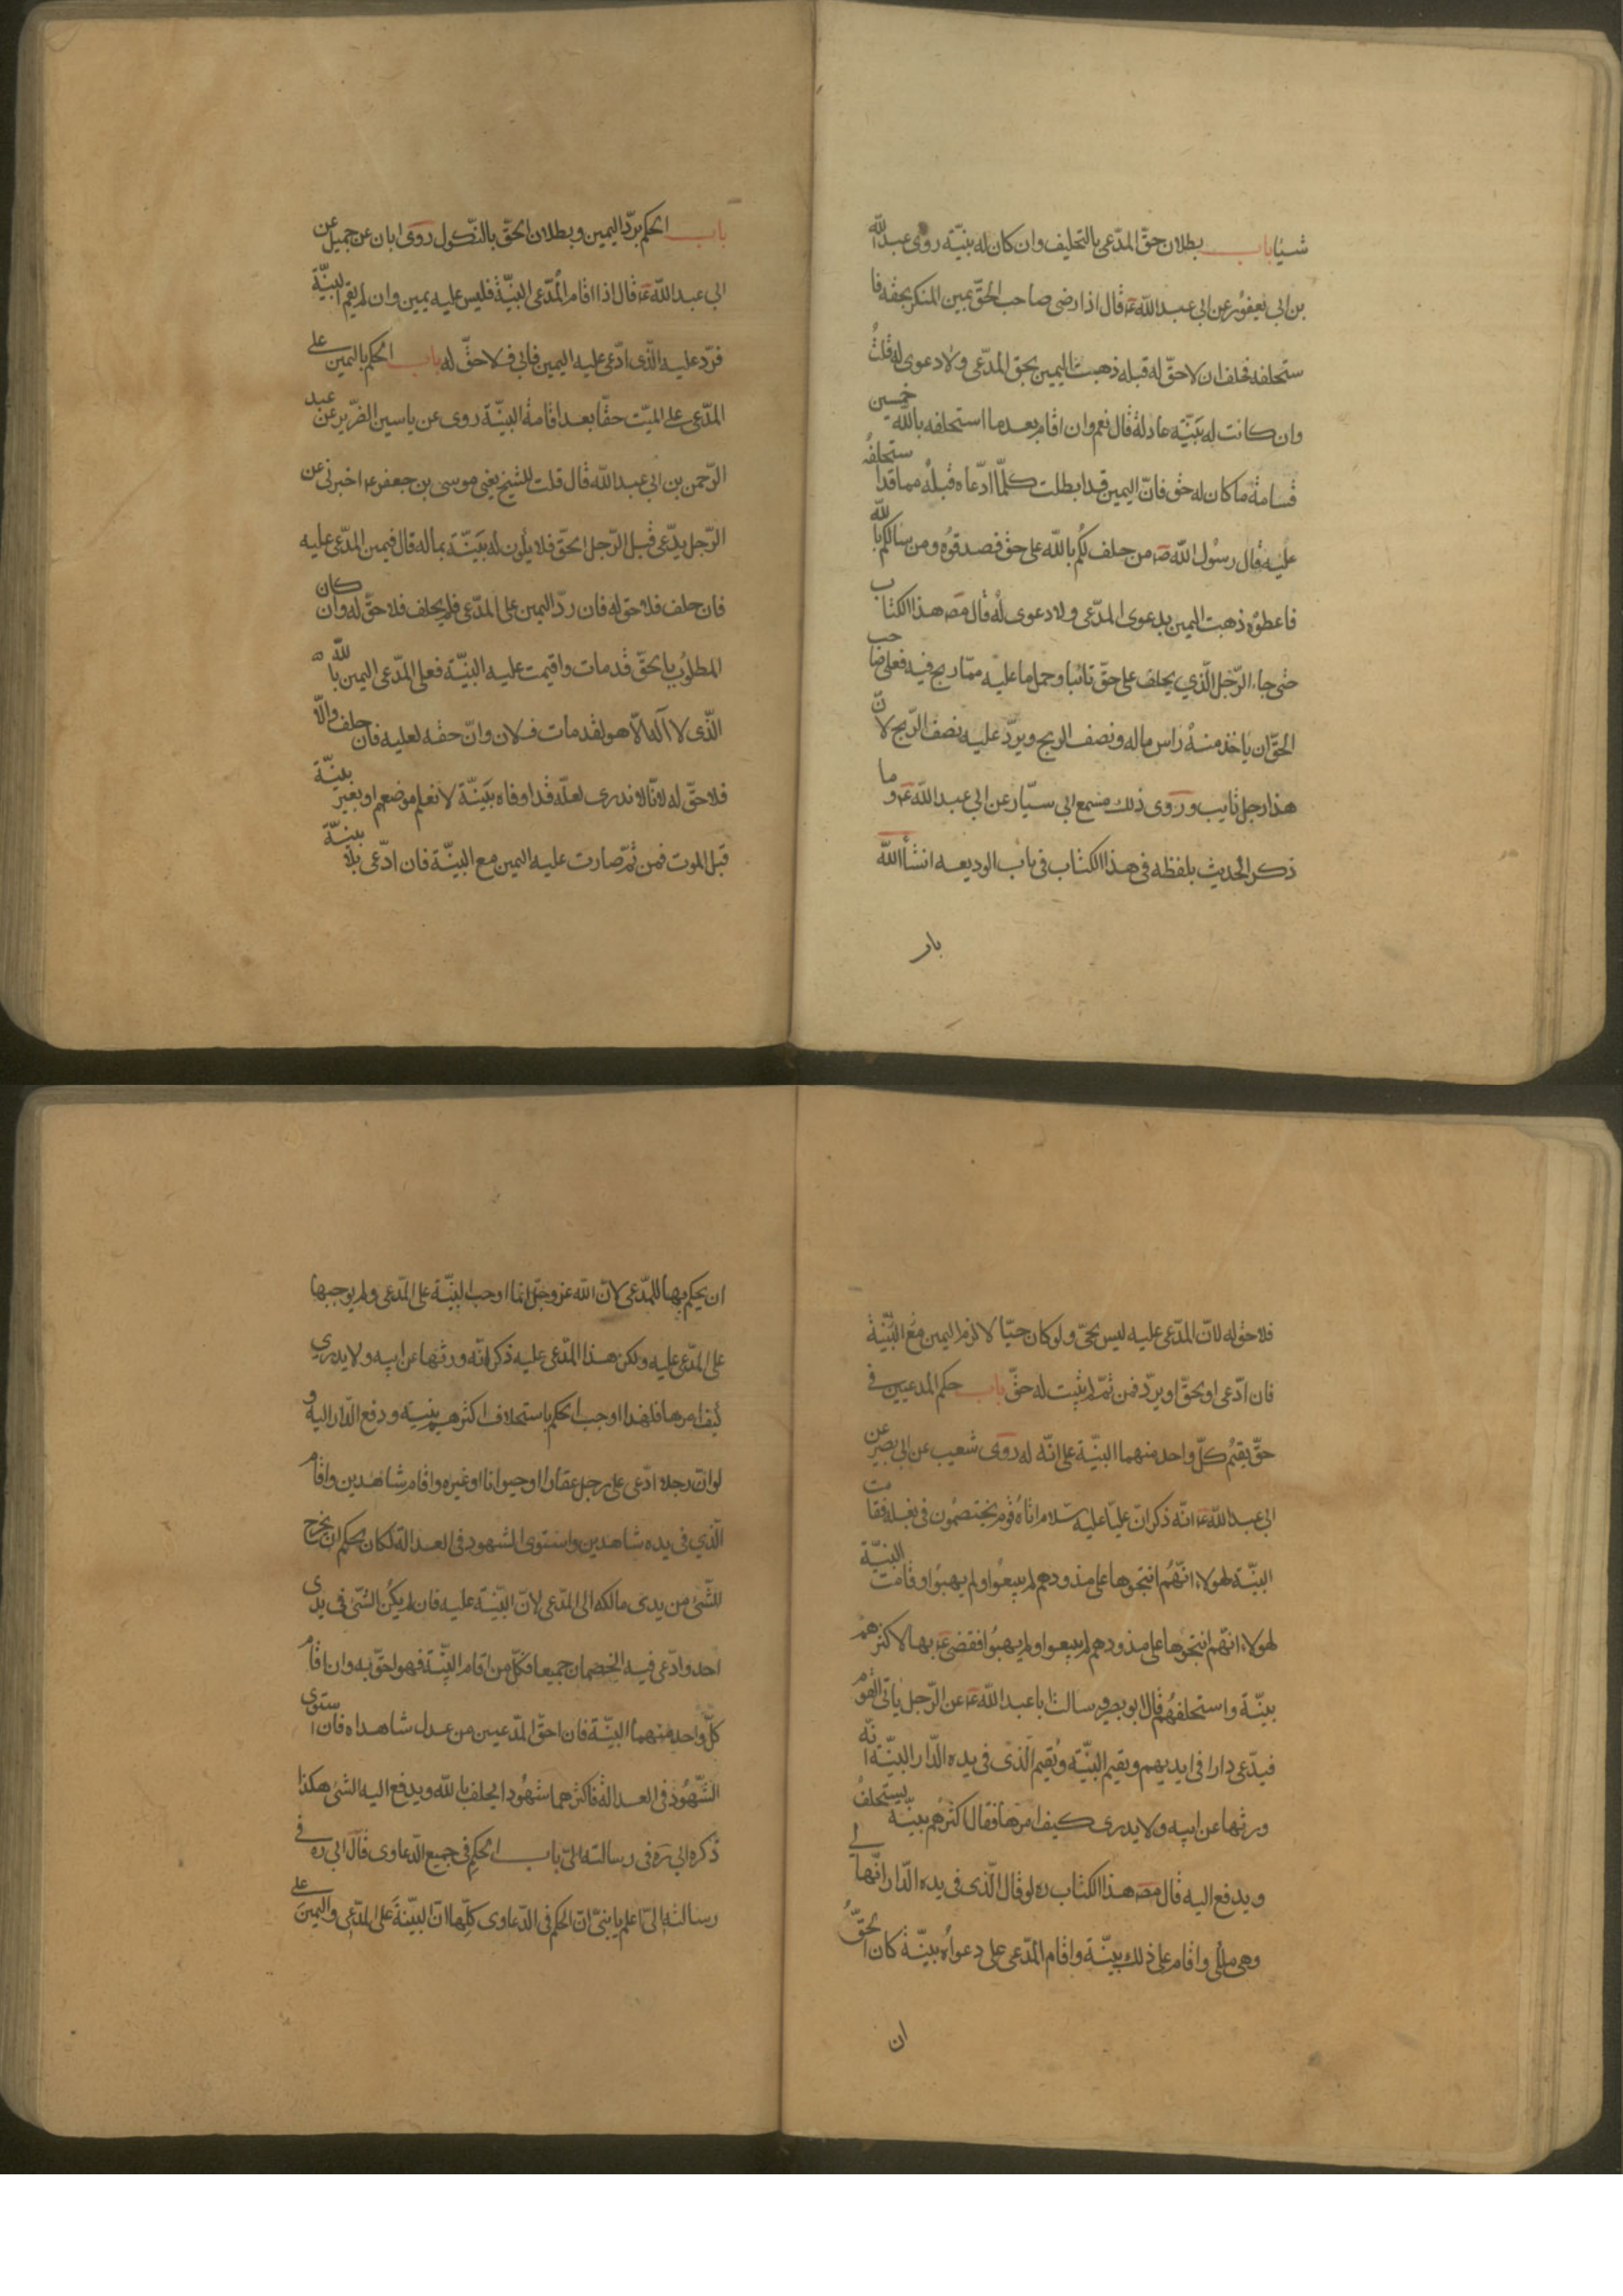 شيئا باب بطلان حق المدّعى بالتحليف وان كان له بيّنة روى عبد الله
بن ابى يعفور عن ابى عبد الله ع قال اذا رضى صاحب الحقّ بيمين المنكر بحقه فا
ستحلفه فحلف ان لا حقّ له قبله ذهبت اليمين بحق المدّعى ولا دعوى له قلت
وان كانت له بيّنة عادلة قال نعم وان اقام بعد ما استحلفه بالله خمسين
قسامة ما كان له حق فانّ اليمين قد ابطلت كلّما ادّعاه قبله مما قد استحلفه
عليه قال رسول الله ص من حلف لكم بالله على حق فصدقوه ومن سالكم بالله
فاعطوه ذهبت اليمين بدعوى المدّعى ولا دعوى له قال مص هذا الكتاب
حتى جاء الرّجل الّذي يحلف على حقّ تائبا وحمل ما عليه ممّا ربح فيه فعلى صاحب
الحقّ ان ياخذ منه راس ماله ونصف الربح ويردّ عليه نصف الرّبح لانّ
هذا رجل تايب وروى ذلك مسمع ابى سيّار عن ابى عبد الله ع وما
ذكر الحديث بلفظه فى هذا الكتاب فى باب الوديعه انشأ الله
باب
باب الحكم بردّ اليمين وبطلان الحقّ بالنّكول روى ابان عن جميل عن
ابى عبد الله ع قال اذا اقام المدّعى البيّنة فليس عليه يمين وان لم يقم البيّنة
فردّ عليه الّذى ادّعى عليه اليمين فابى فلا حقّ له باب الحكم باليمين على
المدّعى على الميّت حقّا بعد اقامة البيّنة روى عن ياسين الضّرير عن عبد
الرّحمن بن ابى عبد الله قال قلت للشيخ يعنى موسى بن جعفر ع اخبرنى عن
الرّجل يدّعى قبل الرّجل الحقّ فلا يكون له بَيّنة بماله قال فيمين المدّعى عليه
فان حلف فلا حق له فان ردّ اليمين على المدّعى فلم يحلف فلا حقّ له وان كان
المطلوب بالحقّ قد مات واقيمت عليه البيّنة فعلى المدّعى اليمين بالله
الّذى لا اله الّا هو لقد مات فلان وانّ حقه لعليه فان حلف والّا
فلا حقّ له لانّا لا ندرى لعلّه قد اوفاه ببَيّنة لا نعلم موضعها او بغير بيّنة
قبل الموت فمن ثمّ صارت عليه اليمين مع البيّنة فان ادّعى بلا بيّنة
فلا حق له لانّ المدّعى عليه ليس بحىّ ولو كان حيّا لالزم اليمين مع البيّنة
فان ادّعى او بحقّ او يردّ فمن ثمّ لم يثبت له حقّ باب حكم المدعيين فى
حقّ يقيم كلّ واحد منهما البيّنة على انّه له روى شعيب عن ابى بصير عن
ابى عبد الله ع انّه ذكر انّ عليّا عليه سلام اتاه قوم يختصمون فى بغلة فقامت
البيّنة لهولاء انّهم انتجوها على مذودهم لم يبيعوا ولم يهبوا وقامت البيّنة
لهولاء انّهم انتجوها على مذودهم لم يبيعوا ولم يهبوا فقضى ع بها لاكثرهم
بيّنة واستحلفهم قال ابو بصير وسالت ابا عبد الله ع عن الرّجل ياتى القوم
فيدّعى دارا فى ايديهم ويقيم البيّنة ويقيم الّذى فى يده الدّار البيّنة انّه
ورثها عن ابيه ولا يدرى كيف امرها فقال اكثرهم بيّنة يستحلف
ويدفع اليه قال مص هذا الكتاب ره لو قال الّذى فى يده الدّار انّها لى
وهى ملكى واقام على ذلك بيّنة واقام المدّعى على دعواه بيّنة كان الحقّ
ان
ان يحكم بها للمدّعى لانّ الله عز وجل انما اوجب البيّنة على المدّعى ولم يوجبها
على المدّعى عليه ولكن هذا المدّعى عليه ذكر انّه ورثها عن ابيه ولا يدري
كيف امرها فلهذا اوجب الحكم باستحلاف اكثرهم بيّنة ودفع الدّار اليه و
لو انّ رجلا ادّعى على رجل عقارا او حيوانا او غيره واقام شاهدين واقام
الّذي فى يده شاهدين واستوى الشهود فى العدالة لكان الحكم ان يخرج
الشّئ من يدى مالكه الى المدّعى لانّ البيّنة عليه فان لم يكن الشّئ فى يدى
احد وادّعى فيه الخصمان جميعا فكلّ من اقام البيّنة فهو احقّ به وان اقام
كلّ واحد منهما البيّنة فان احقّ المدّعيين من عدل شاهداه فان استوى
الشّهود فى العدالة فاكثرهما شهودا يحلف بالله ويدفع اليه الشئ هكذا
ذكره ابى ره فى رسالته الىّ باب الحكم فى جميع الدّعاوى قال ابى ره فى
رسالته الىّ اعلم يا بنىّ انّ الحكم فى الدّعاوى كلّها انّ البيّنة على المدّعى واليمين على